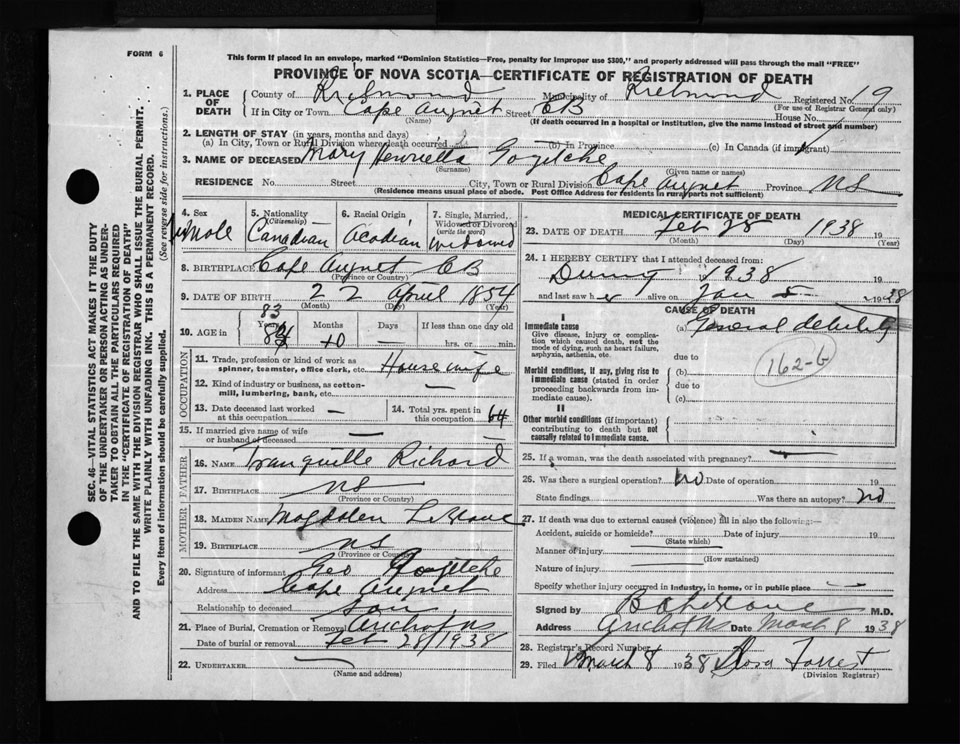 FORM 6
This form if placed in an envelope, marked "Dominion Statistics—Free, penalty for improper use $300," and properly addressed will pass through the mail "FREE"
PROVINCE OF NOVA SCOTIA—CERTIFICATE OF REGISTRATION OF DEATH
SEC. 46—VITAL STATISTICS ACT MAKES IT THE DUTY
OF THE UNDERTAKER OR PERSON ACTING AS UNDER-
TAKER TO OBTAIN ALL THE PARTICULARS REQUIRED
IN THE "CERTIFICATE OF REGISTRATION OF DEATH"
AND TO FILE THE SAME WITH THE DIVISION REGISTRAR WHO SHALL ISSUE THE BURIAL PERMIT.
WRITE PLAINLY WITH UNFADING INK. THIS IS A PERMANENT RECORD.
Every item of information should be carefully supplied. (See reverse side for instructions.)
1. PLACE OF DEATH
County of Richmond Municipality of Richmond Registered No. 19
(For use of Registrar General only)
If in City or Town Cape Auguet Street CB House No.
(Name) (If death occurred in a hospital or institution, give the name instead of street and number)
2. LENGTH OF STAY (in years, months and days)
(a) In City, Town or Rural Division where death occurred (b) In Province (c) In Canada (if immigrant)
3. NAME OF DECEASED Mary Henrietta Goyetche
(Surname) (Given name or names)
RESIDENCE No. Street City, Town or Rural Division Cape Auguet Province NS
(Residence means usual place of abode. Post Office Address for residents in rural parts not sufficient)
4. Sex 5. Nationality (Citizenship) 6. Racial Origin 7. Single, Married, Widowed or Divorced (write the word)
Canadian Acadian Widowed
8. BIRTHPLACE Cape Auguet CB
(Province or Country)
9. DATE OF BIRTH 22 April 1854
(Month) (Day) (Year)
83
10. AGE in Years Months Days If less than one day old
10 — hrs. or min.
OCCUPATION
11. Trade, profession or kind of work as
spinner, teamster, office clerk, etc. Housewife
12. Kind of industry or business, as cotton-
mill, lumbering, bank, etc. —
13. Date deceased last worked
at this occupation —
14. Total yrs. spent in
this occupation 64
15. If married give name of wife
or husband of deceased —
FATHER
16. NAME Tranquille Richard
17. BIRTHPLACE NS
(Province or Country)
MOTHER
18. MAIDEN NAME Magdalen LeBlanc
19. BIRTHPLACE NS
(Province or Country)
20. Signature of informant Geo Goyetche
Address Cape Auguet
Relationship to deceased son
21. Place of Burial, Cremation or Removal Arichat NS
Date of burial or removal Feb 28/1938
22. UNDERTAKER —
(Name and address)
MEDICAL CERTIFICATE OF DEATH
23. DATE OF DEATH Feb 28 1938 19
(Month) (Day) (Year)
24. I HEREBY CERTIFY that I attended deceased from:
During 1938 19
and last saw her alive on Jan 5 1938
CAUSE OF DEATH
I
Immediate cause
Give disease, injury or complica-
tion which caused death, not the
mode of dying, such as heart failure,
asphyxia, asthenia, etc.
(a) General debility
due to
Morbid conditions, if any, giving rise to
immediate cause (stated in order
proceeding backwards from im-
mediate cause).
(b)
162-b
due to
(c)
II
Other morbid conditions (if important)
contributing to death but not
causally related to immediate cause.
25. If a woman, was the death associated with pregnancy? —
26. Was there a surgical operation? No Date of operation 19
State findings Was there an autopsy? No
27. If death was due to external causes (violence) fill in also the following:—
Accident, suicide or homicide? Date of injury 19
(State which)
Manner of injury
(How sustained)
Nature of injury
Specify whether injury occurred in industry, in home, or in public place —
Signed by LeBlanc M.D.
Address Arichat NS Date March 8 1938
28. Registrar's Record Number
29. Filed March 8 1938 Flora Forrest
(Division Registrar)